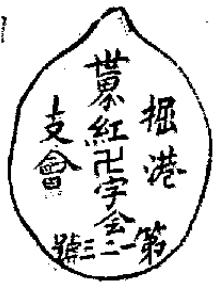 掘港
世界紅卍字会
支會
第一二三號